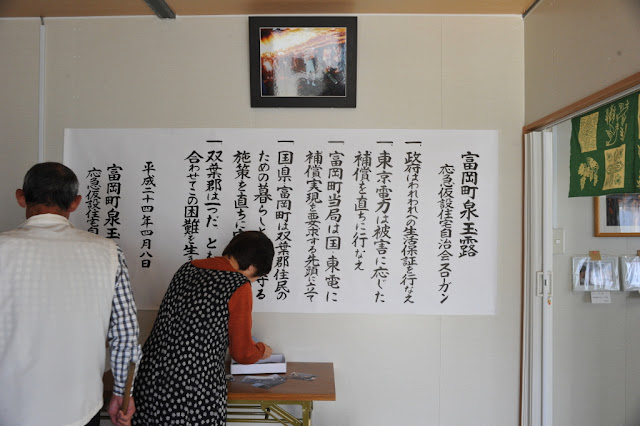 富岡町泉玉露
応急仮設住宅自治会スローガン
一 政府はわれわれへの生活保証を行なえ
一 東京電力は被害に応じた
補償を直ちに行なえ
一 富岡町当局は国 東電に
補償実現を要求する先頭に立て
一 国 県 富岡町は双葉郡住民の
ための暮らしと
守る
施策を直ちに
一 双葉郡は一つだ とも
合わせてこの困難を生き
平成二十四年四月八日
富岡町泉玉
応急仮設住宅自